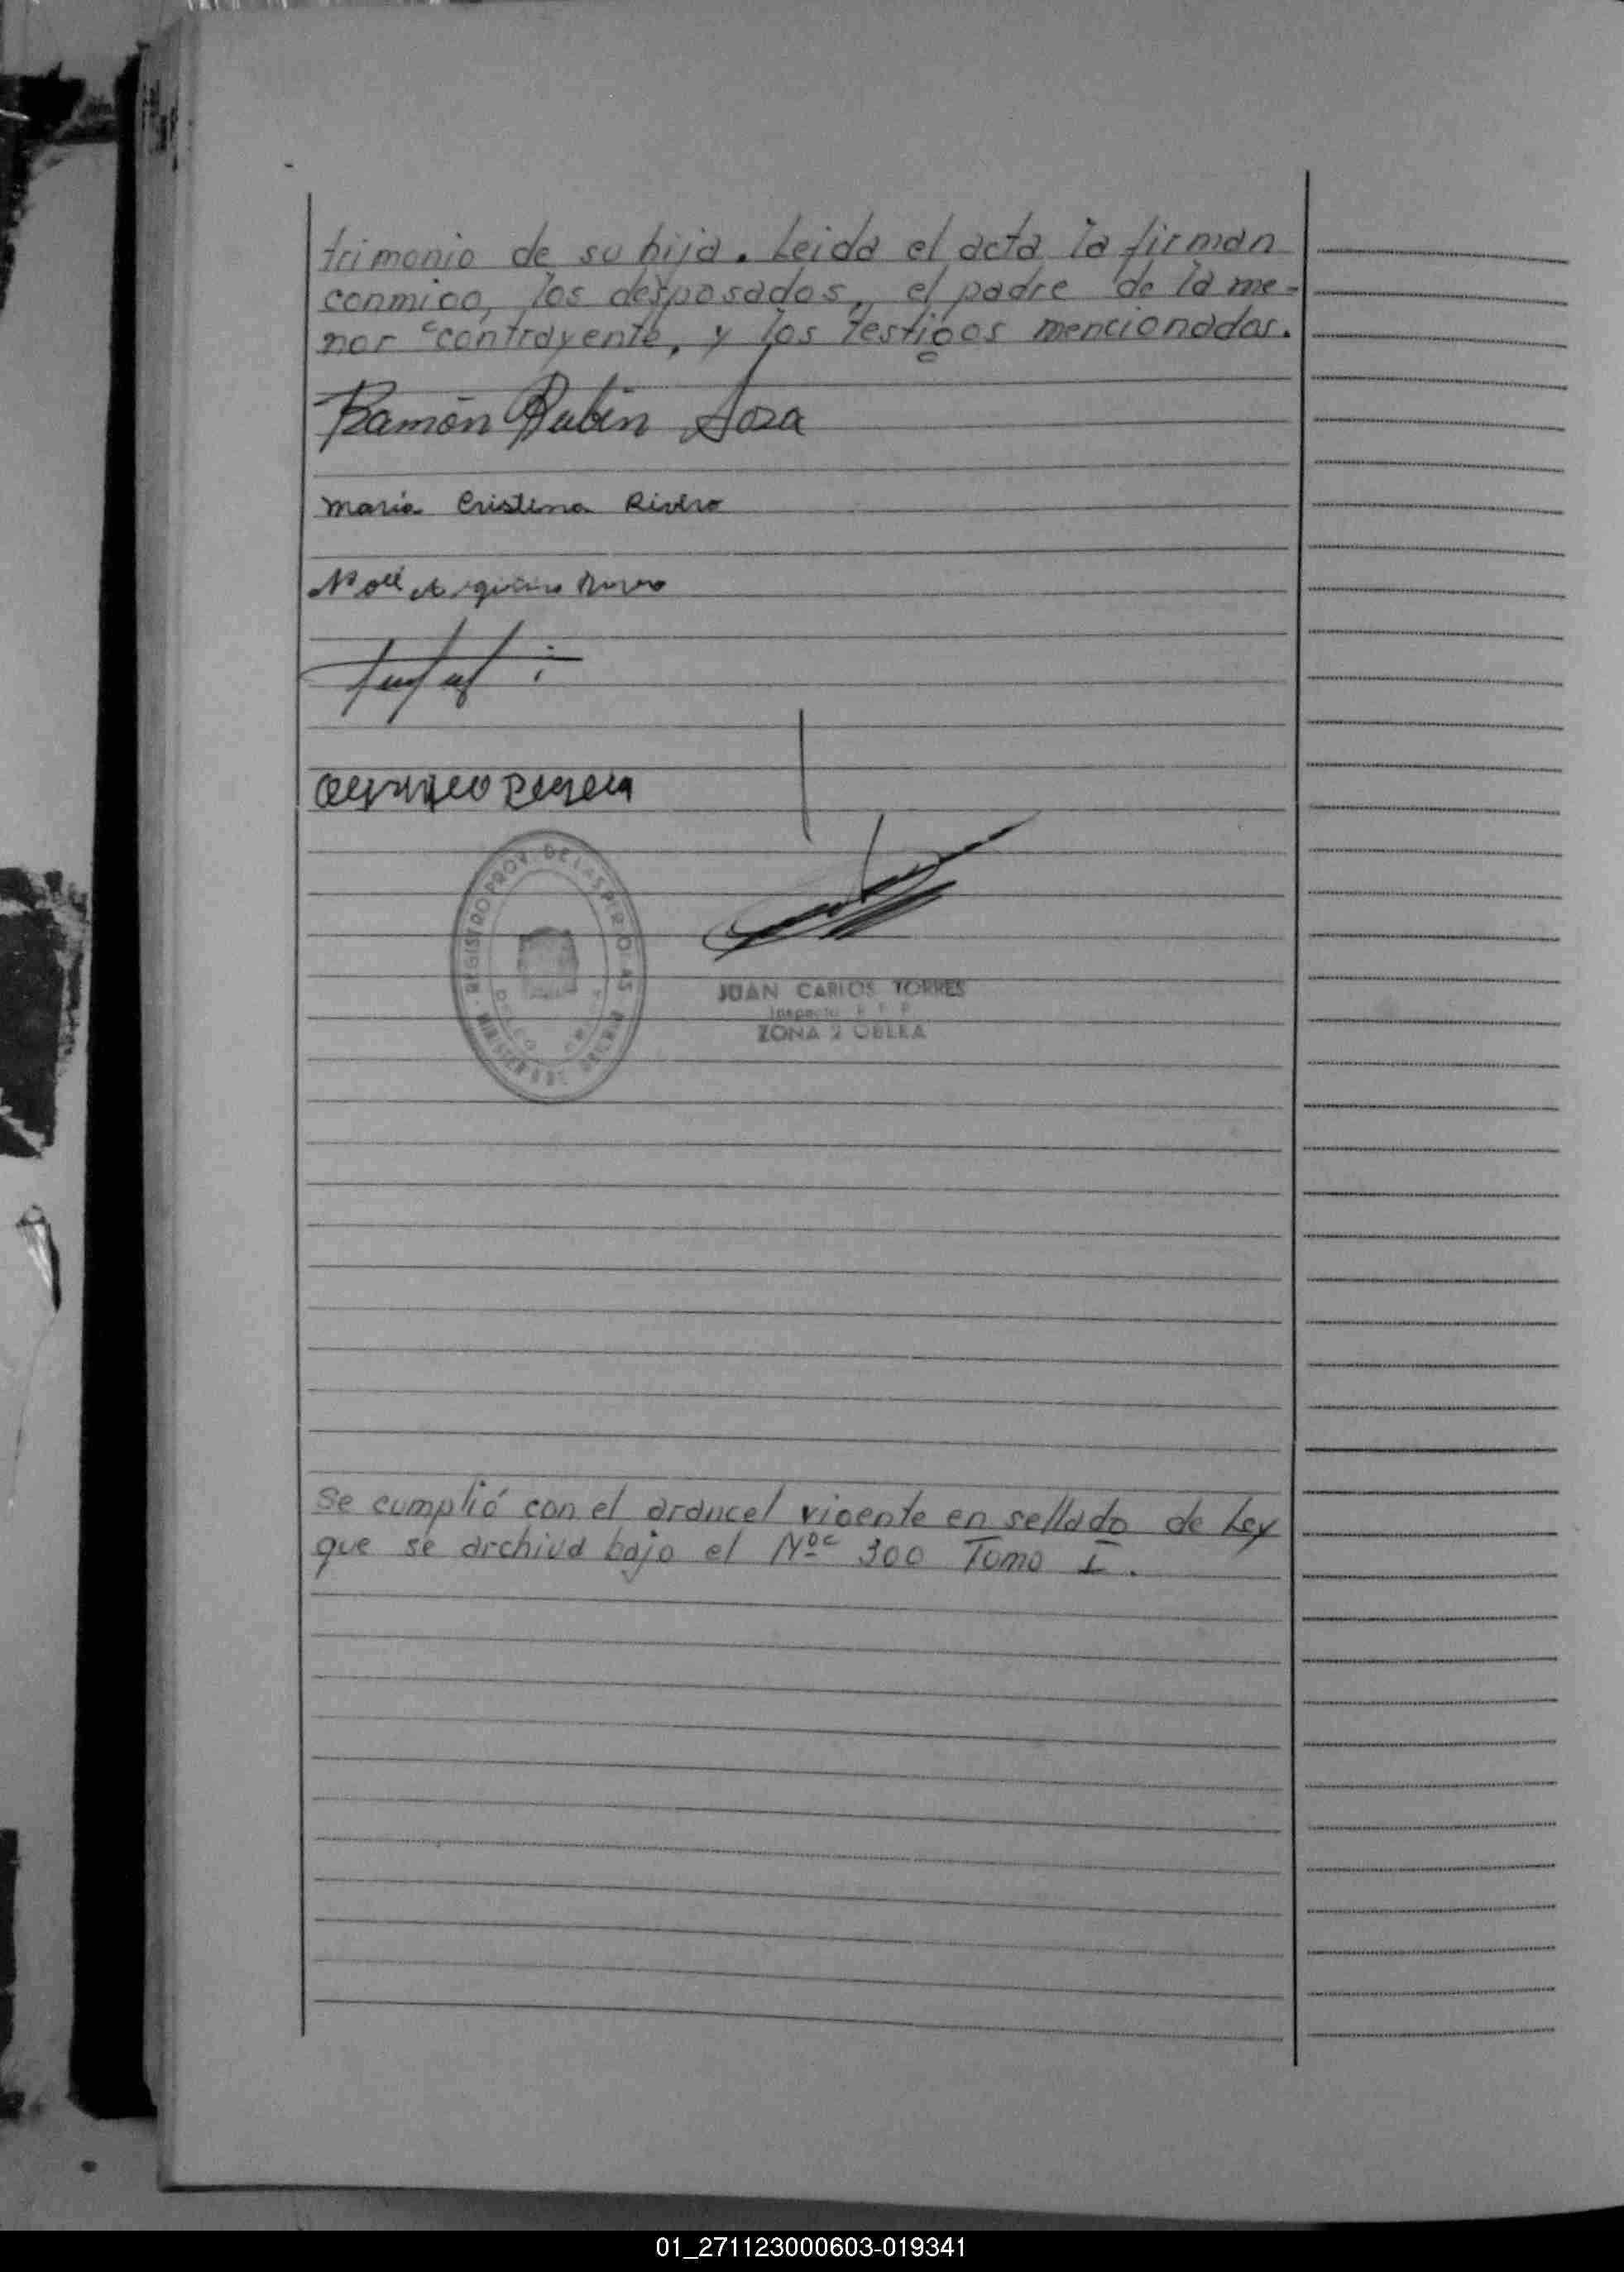 trimonio de su hija. Leida el acta la firman
conmigo, los desposados, el padre de la me-
nor contrayente, y los testigos mencionados.
Ramón Rubin Sosa
Maria Cristina Rivero
REGISTRO PROV. DE LAS PERSONAS
JUAN CARLOS TORRES
Inspector R. P. P.
ZONA 2 OBERA
Se cumplió con el arancel vigente en sellado de Ley
que se archiva bajo el Nº 300 Tomo I.
01_271123000603-019341